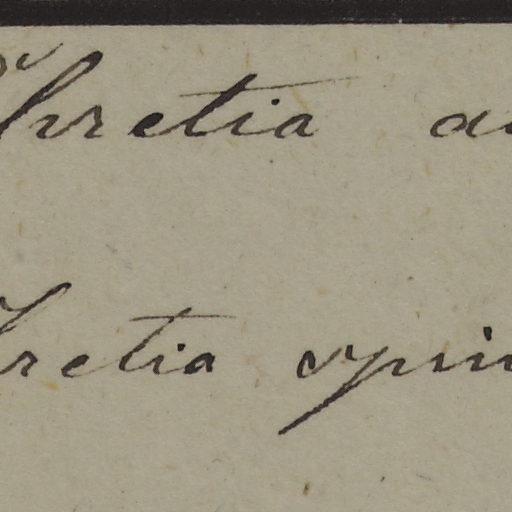 hretia a
hretia spin